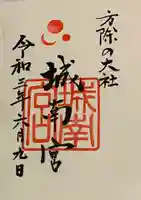 方除の大社
城南宮
令和三年六月九日
城南
宮印